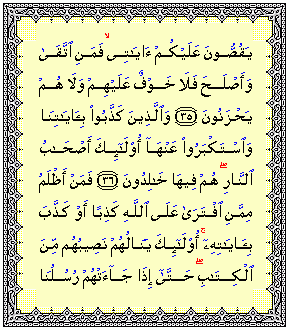 يَقُصُّونَ عَلَيْكُمْ ءَايَٰتِى ۙ فَمَنِ ٱتَّقَىٰ
وَأَصْلَحَ فَلَا خَوْفٌ عَلَيْهِمْ وَلَا هُمْ
يَحْزَنُونَ ﴿٣٥﴾ وَٱلَّذِينَ كَذَّبُوا۟ بِـَٔايَٰتِنَا
وَٱسْتَكْبَرُوا۟ عَنْهَآ أُو۟لَٰٓئِكَ أَصْحَٰبُ
ٱلنَّارِ ۖ هُمْ فِيهَا خَٰلِدُونَ ﴿٣٦﴾ فَمَنْ أَظْلَمُ
مِمَّنِ ٱفْتَرَىٰ عَلَى ٱللَّهِ كَذِبًا أَوْ كَذَّبَ
بِـَٔايَٰتِهِۦٓ ۚ أُو۟لَٰٓئِكَ يَنَالُهُمْ نَصِيبُهُم مِّنَ
ٱلْكِتَٰبِ ۖ حَتَّىٰٓ إِذَا جَآءَتْهُمْ رُسُلُنَا